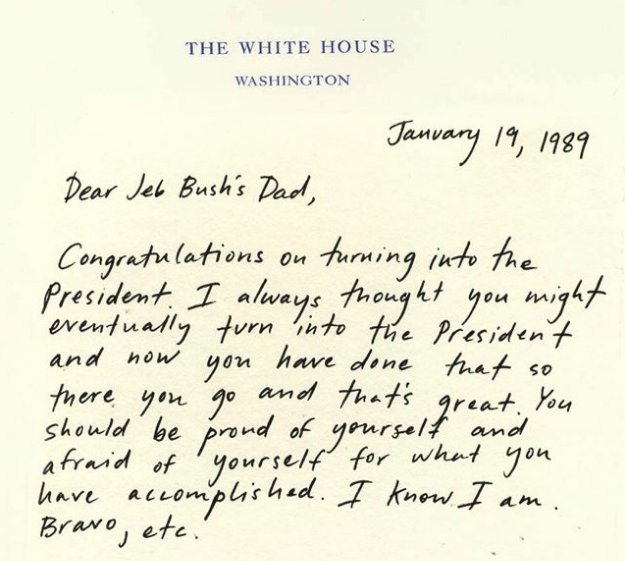 THE WHITE HOUSE
WASHINGTON
January 19, 1989
Dear Jeb Bush's Dad,
Congratulations on turning into the
President. I always thought you might
eventually turn into the President
and now you have done that so
there you go and that's great. You
should be proud of yourself and
afraid of yourself for what you
have accomplished. I know I am.
Bravo, etc.